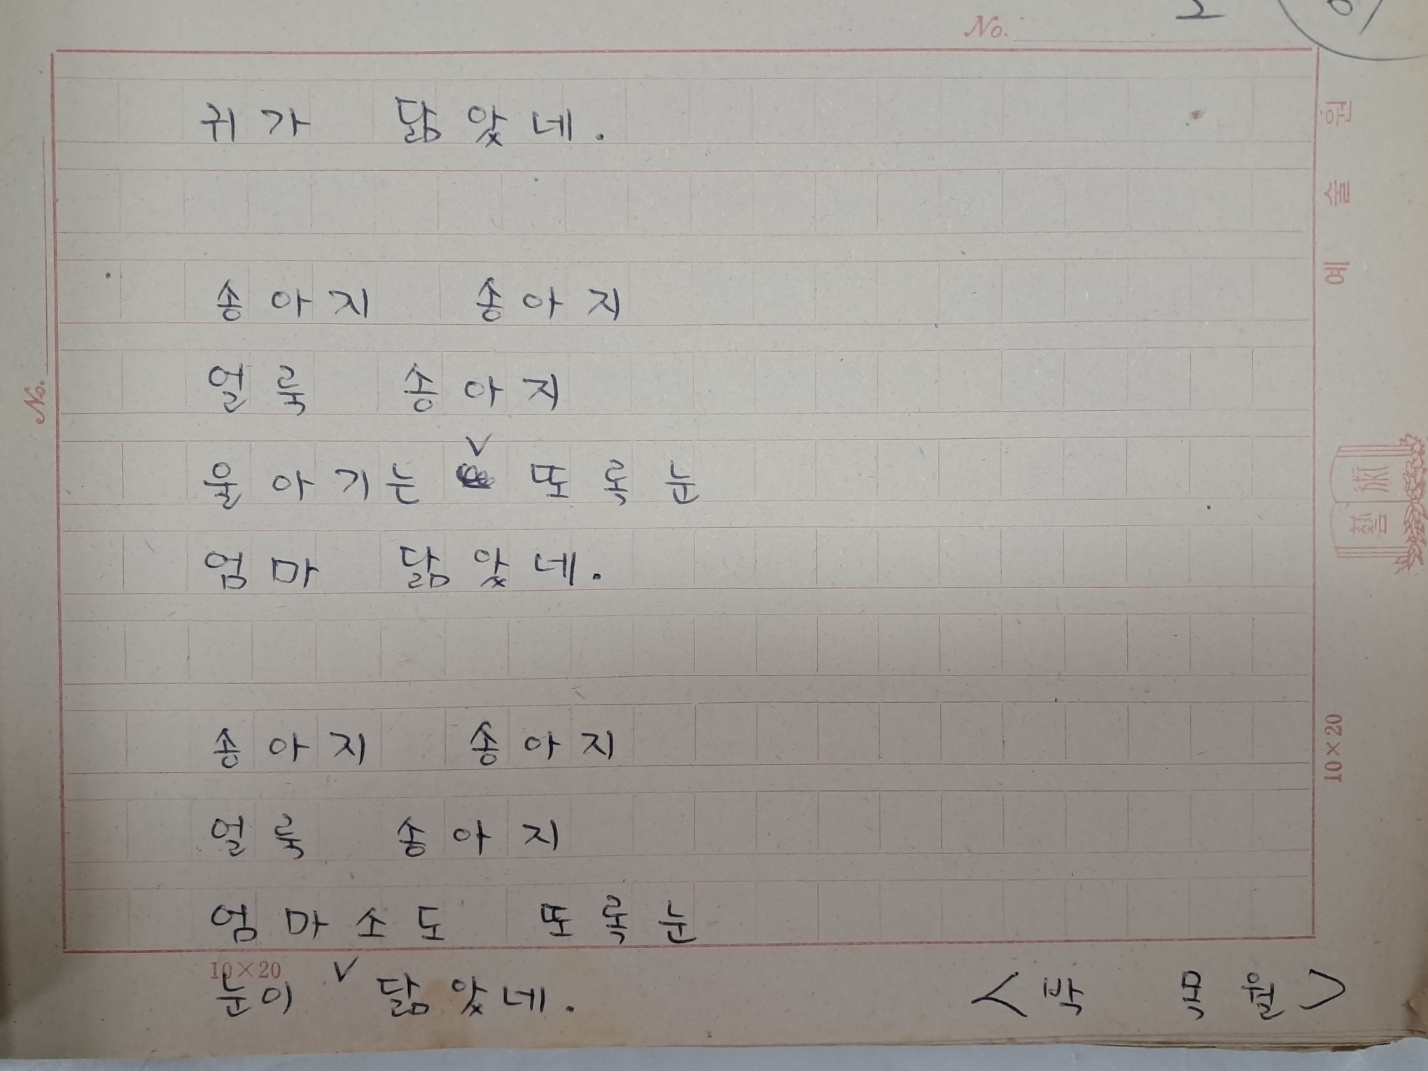 No.
귀가 닮았네.
송아지 송아지
얼룩 송아지
울아기는 또록눈
엄마 닮았네.
송아지 송아지
얼룩 송아지
엄마소도 또록눈
10×20
눈이 닮았네.
<박 목월>
No.
예술원
藝術
10×20